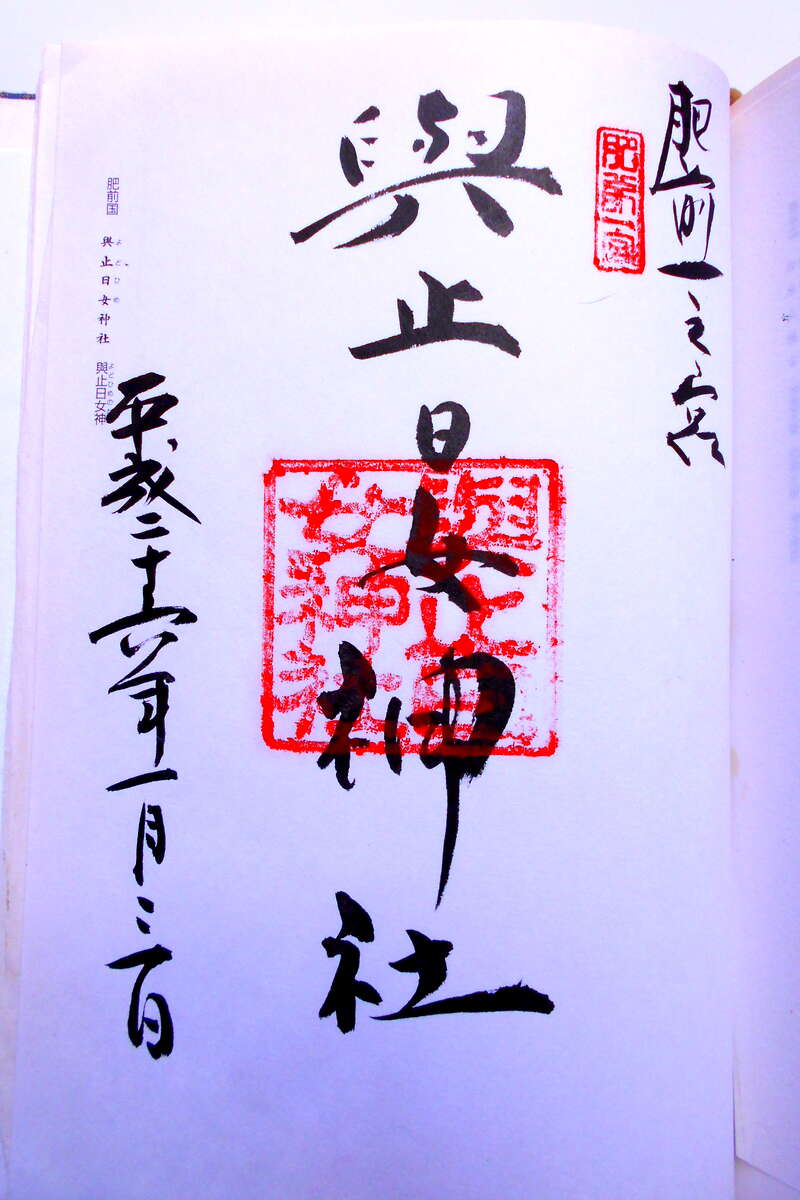 肥前一之宮
與止日女神社
與止日
女神社
肥前国 與止日女神社 與止日女神
よどひめ
よどひめの
平成二十六年一月三日